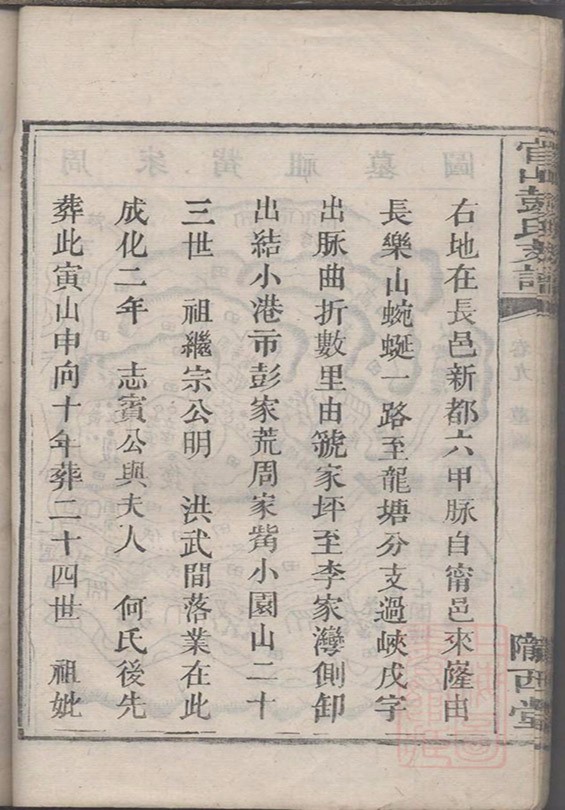 官山彭氏支譜
卷九 墓圖
隴西堂
右地在長邑新都六甲脉自甯邑來隆由
長樂山蜿蜒一路至龍塘分支過峽戌字
出脉曲折數里由虢家坪至李家灣側卸
出結小港市彭家荒周家觜小園山二十
三世 祖繼宗公明 洪武間落業在此
成化二年 志賓公與夫人 何氏後先
葬此寅山申向十年葬二十四世 祖妣